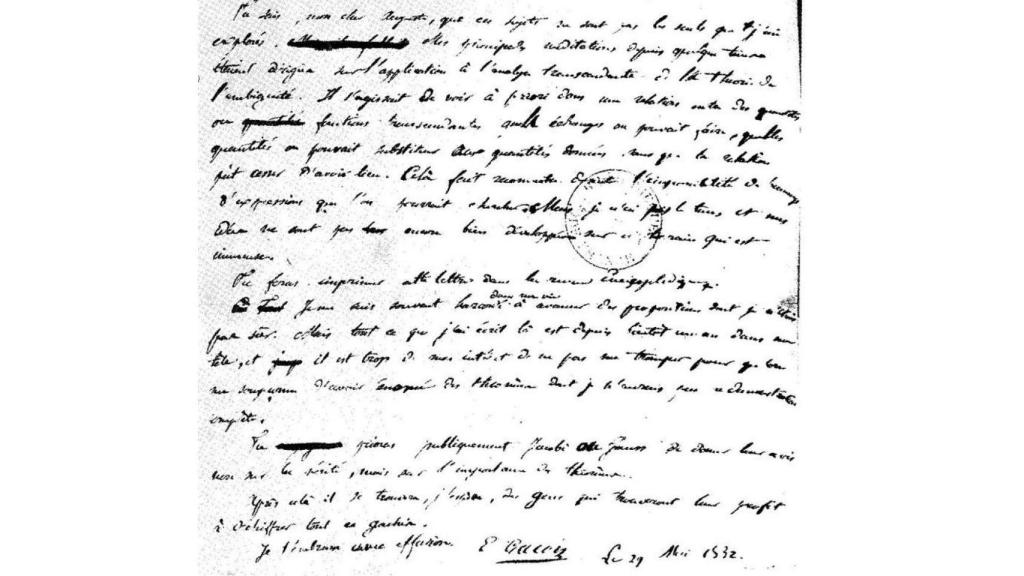 Tu sais, mon cher Auguste, que ces sujets ne sont pas les seuls que j'aie
explorés. Mes principales méditations depuis quelque temps
étaient dirigées sur l'application à l'analyse transcendante de la théorie de
l'ambiguité. Il s'agissait de voir à priori dans une relation entre des quantités
ou fonctions transcendantes quels échanges on pouvait faire, quelles
quantités on pouvait substituer aux quantités données sans que la relation
pût cesser d'avoir lieu. Cela fait reconnaitre l'impossibilité de beaucoup
d'expressions que l'on pourrait chercher. Mais je n'ai pas le tems et mes
idées ne sont pas encore bien développées sur ce terrain qui est
immense.
Tu feras imprimer cette lettre dans la revue Encyclopédique.
Je me suis souvent hasardé dans ma vie à avancer des propositions dont je n'étais
pas sûr. Mais tout ce que j'ai écrit là est depuis bientôt un an dans ma
tête, et il est trop de mon intérêt de ne pas me tromper pour qu'on
me soupçonne d'avoir énoncé des théorèmes dont je n'aurais pas la démonstration
complète.
Tu prieras publiquement Jacobi ou Gauss de donner leur avis
non sur la vérité, mais sur l'importance des théorèmes.
Après cela il se trouvera, j'espère, des gens qui trouveront leur profit
à déchiffrer tout ce gachis.
Je t'embrasse avec effusion. E Galois Le 29 Mai 1832.